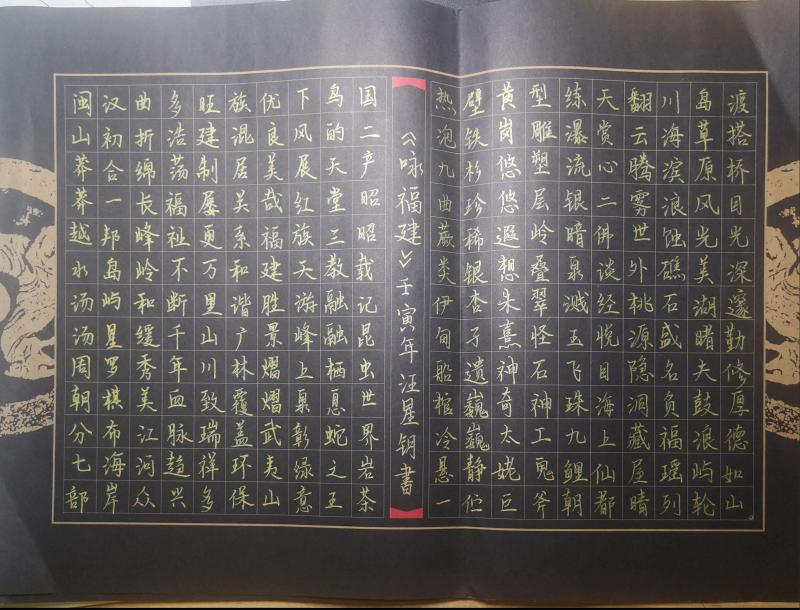 闽山莽莽越水汤汤周朝分七部
汉初合一邦岛屿星罗棋布海岸
曲折绵长峰岭和缓秀美江河众
多浩荡福祉不断千年血脉趋兴
旺建制屡更万里山川致瑞祥多
族混居关系和谐广林覆盖环保
优良美哉福建胜景熠熠武夷山
下风展红旗天游峰上泉彰绿意
鸟的天堂三教融融栖息蛇之王
国二产昭昭载记昆虫世界岩茶
《咏福建》壬寅年汪星钥書
热泡九曲蕨类伊甸船棺冷悬一
壁铁杉珍稀银杏孑遗巍巍静伫
黄岗悠悠遐想朱熹神奇太姥巨
型雕塑层岭叠翠怪石神工鬼斧
练瀑流银暗泉溅玉飞珠九鲤朝
天赏心二佛谈经悦目海上仙都
翻云腾雾世外桃源隐洞藏屋晴
川海滨浪蚀礁石盛名负福瑶列
岛草原风光美湖睹夫鼓浪屿轮
渡搭桥目光深邃勤修厚德如山